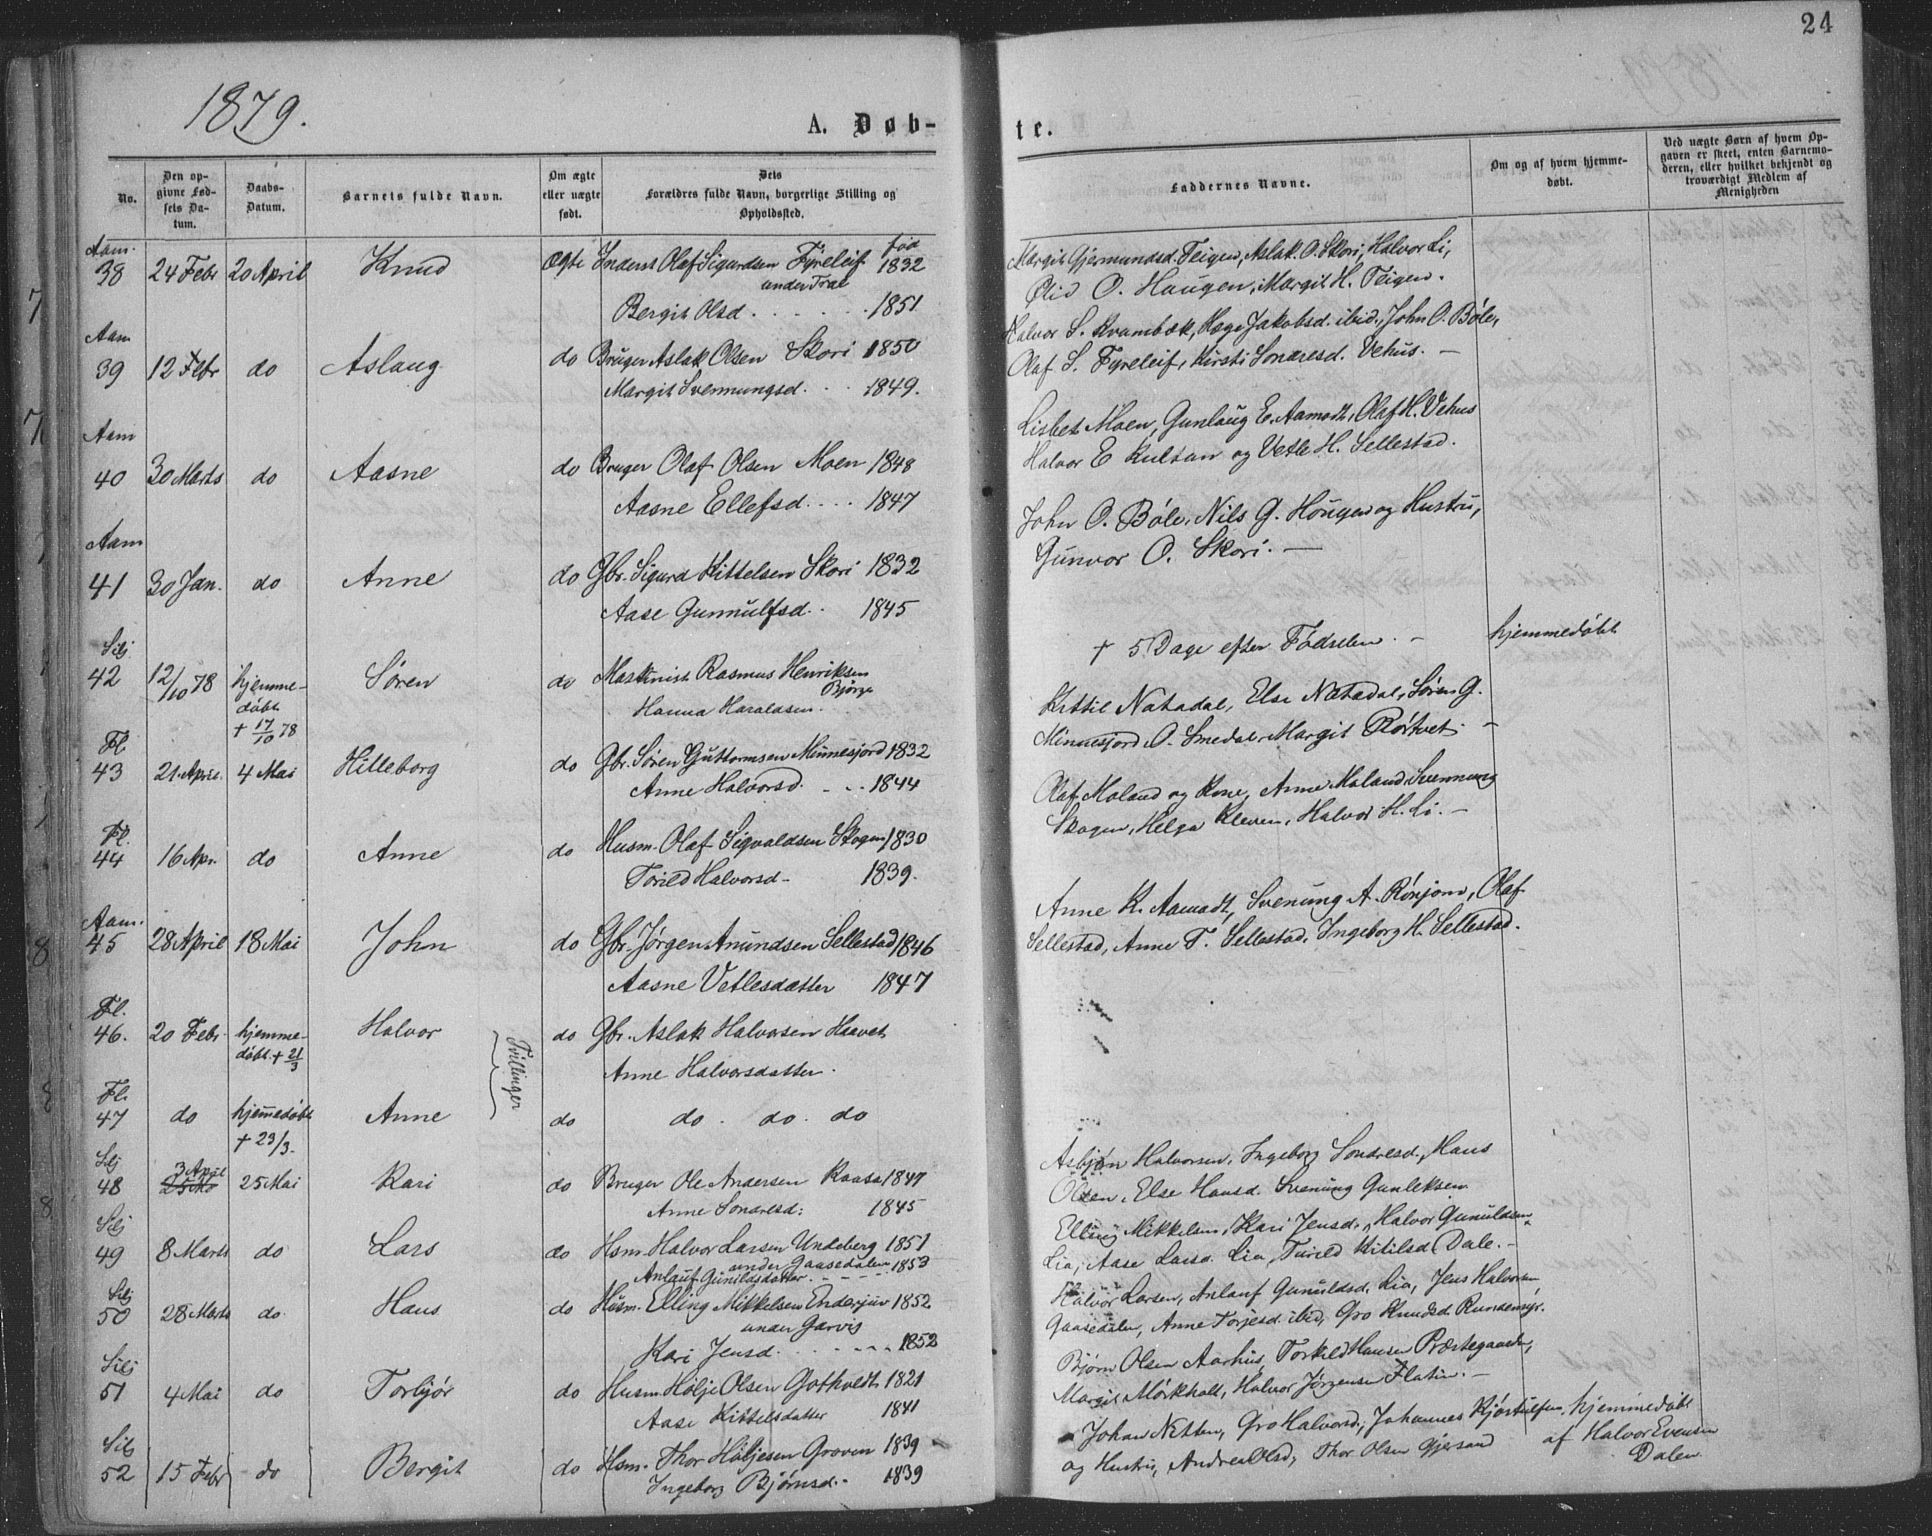 24
1879.
A. Døb-
te.
No.
Den opgivne Fødsels Datum.
Daabs-Datum.
Barnets fulde Navn.
Om ægte eller uægte født.
Dets Forældres fulde Navn, borgerlige Stilling og Opholdssted.
Faddernes Navne.
Om og af hvem hjemmedøbt.
Ved uægte Børn af hvem Opgaven er skeet, enten Barnemoderen, eller hvilket bekjendt og troværdigt Medlem af Menigheden
Aam. fød
38 24 Febr 20 April Knud Ægte Inderst Olaf Sigurdsen Fyreleif 1832
under Træe
Bergit Olsd. 1851
Margit Gjermundsd. Teigen, Aslak O. Skori, Halvor Li,
Ølid O. Haugen, Margit H. Teigen.
Aam
39 12 Febr do Aslaug do Bruger Aslak Olsen Skori 1850
Margit Svennungsd. 1849.
Halvor S. Kvambæk, Hæge Jakobsd. ibid., John O. Bøle,
Olaf S. Fyreleif, Kirsti Sondresd. Vehus. —
Aam
40 30 Marts do Aasne do Bruger Olaf Olsen Moen 1848
Aasne Ellefsd. 1847
Lisbet Moen, Gunlaug E. Aamodt, Olaf H. Vehus
Halvor E Kultan og Vetle H. Sellestad.
Aam
41 30 Jan. do Anne do Gbr. Sigurd Kittelsen Skori 1832
Aase Gunnulfsd. 1845
John O. Bøle, Nils G. Hougen og Hustru,
Gunvor O. Skori. —
Silj
42 12/10 78 hjemmedøbt + 17/10 78 Søren do Maskinist Rasmus Henriksen
Bjørge
Hanna Haraldsen.
+ 5 Dage efter Fødselen. - hjemmedøbt
Fl.
43 21 April. 4 Mai Hilleborg do Gbr. Søren Guttormsen Minnesjord 1832
Anne Halvorsd. 1844
Kittil Natadal, Else Natadal, Søren G.
Minnesjord, O. Smedal, Margit Rørtvet. —
Fl.
44 16 Apr. do Anne do Husm. Olaf Sigvaldsen Skogen 1830
Torild Halvorsd- 1839.
Olaf Moland og Kone, Anne Moland, Svennung
Skogen, Helga Kleven, Halvor H. Li. —
Aam.
45 28 April 18 Mai John do Gbr. Jørgen Anundsen Sellestad 1846
Aasne Vetlesdatter 1847
Anne K. Aamodt, Svenung A. Rønjom, Olaf
Sellestad, Anne T. Sellestad, Ingeborg H. Sellestad.
Fl.
46. 20 Febr. hjemmedøbt. + 21/3 Halvor Tvillinger do Gbr. Aslak Halvorsen Haavet
Anne Halvorsdatter.
Fl.
47 do hjemmedøbt + 23/3. Anne do do. do. do
Silj
48 3 April 25 Mai Kari do Bruger Ole Andersen Kaasa 1847
Anne Sondresd: 1845
Asbjøn Halvorsen, Ingeborg Sondresd., Hans
Olsen, Else Hansd. Svenung Gunleksen
Silj
49 8 Marts do Lars do Hsm. Halvor Larsen Undeberg 1851
under Gaasedalen
Anlauf Gunildsdatter. 1853
Elling Mikkelsen, Kari Jensd., Halvor Gunuldsen
Lia, Aase Larsd. Lia, Turild Kitilsd. Dale. -
Silj
50 28 Marts do Hans do Husm. Elling Mikkelsen Enderjuv 1852
under Garvis
Kari Jensd. 1852
Halvor Larsen, Anlauf Gunuldsd. Lia, Jens Halvorsen
Gaasedalen, Anne Torjesd. ibid, Gro Knudsd. Rundemyr.
Silj
51 4 Mai do Torbjør do Husm. Hølje Olsen Gotholdt 1821
Aase Kittelsdatter 1841
Bjørn Olsen Aarhus, Torkild Hansen Præstegaarden,
Margit Mørkholt, Halvor Jørgensen Flatin. —
Silj
52 15 Febr do Bergit do Hsm. Thor Høljesen Groven 1839
Ingeborg Bjørnsd. 1839
Johan Netten, Gro Halvorsd., Johannes Kjøstulfsen hjemmedøbt
og Hustru, Andrea Olsd., Thor Olsen Gjersand af Halvor Evensen
Dalen